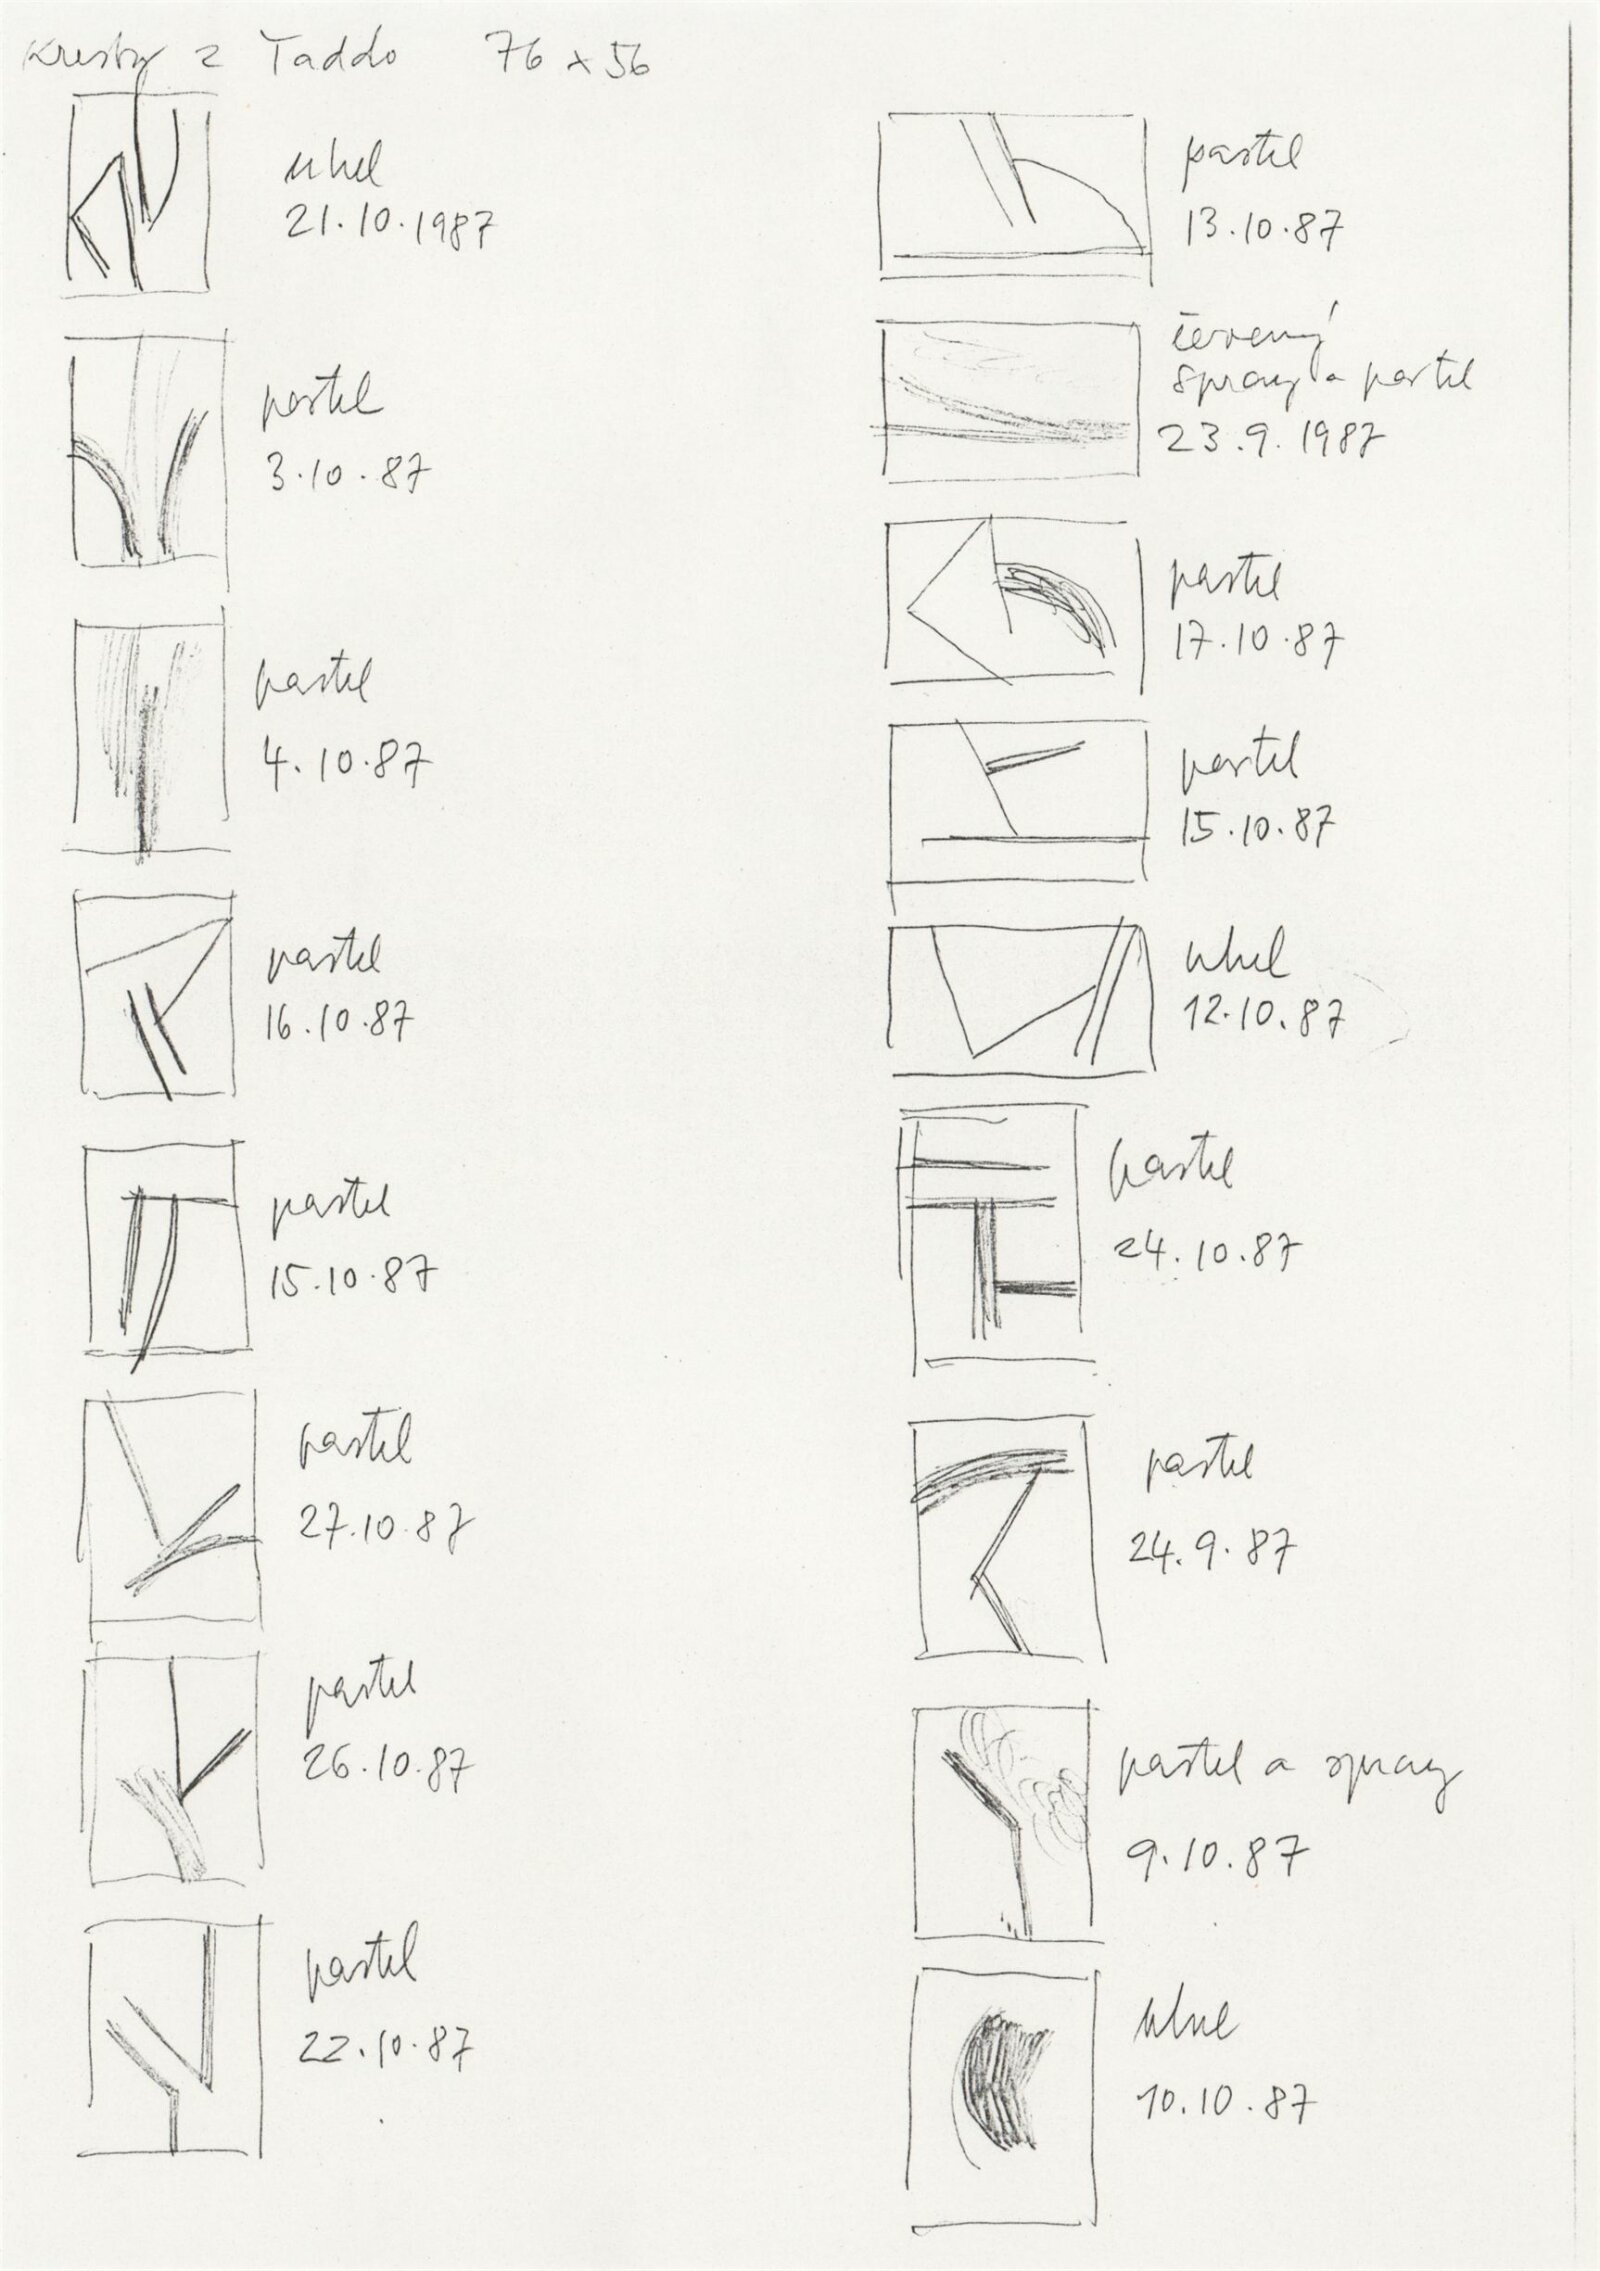 Kresby z Taddo 76 x 56
uhel
21.10.1987
pastel
3.10.87
pastel
4.10.87
pastel
16.10.87
pastel
15.10.87
pastel
27.10.87
pastel
26.10.87
pastel
22.10.87
pastel
13.10.87
červený
spray a pastel
23.9.1987
pastel
17.10.87
pastel
15.10.87
uhel
12.10.87
pastel
24.10.87
pastel
24.9.87
pastel a spray
9.10.87
uhel
10.10.87